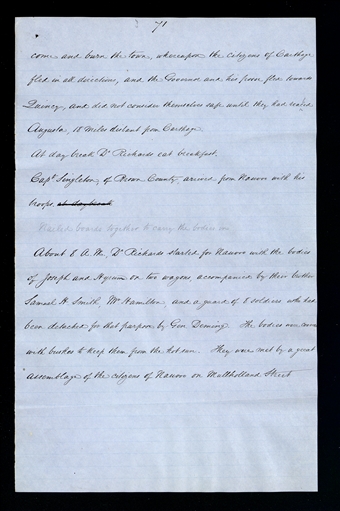 71
come and burn the town, whereupon the citizens of Carthage
fled in all directions, and the Governor and his posse fled towards
Quincy, and did not consider themselves safe until they had reached
Augusta, 18 miles distant from Carthage.
At day break Dr Richards eat breakfast.
Capt Singleton, of Brown County, arrived from Nauvoo with his
troops. at daybreak
Nailed boards together to carry the bodies on
About 8 A.M. Dr Richards started for Nauvoo with the bodies
of Joseph and Hyrum on two wagons, accompanied by their brother
Samuel H. Smith, Mr Hamilton, and a guard of 8 soldiers who had
been detached for that purpose by Gen Deming. The bodies were
with bushes to keep them from the hot sun. They were met by a great
assemblage of the citizens of Nauvoo on Mullholland Street